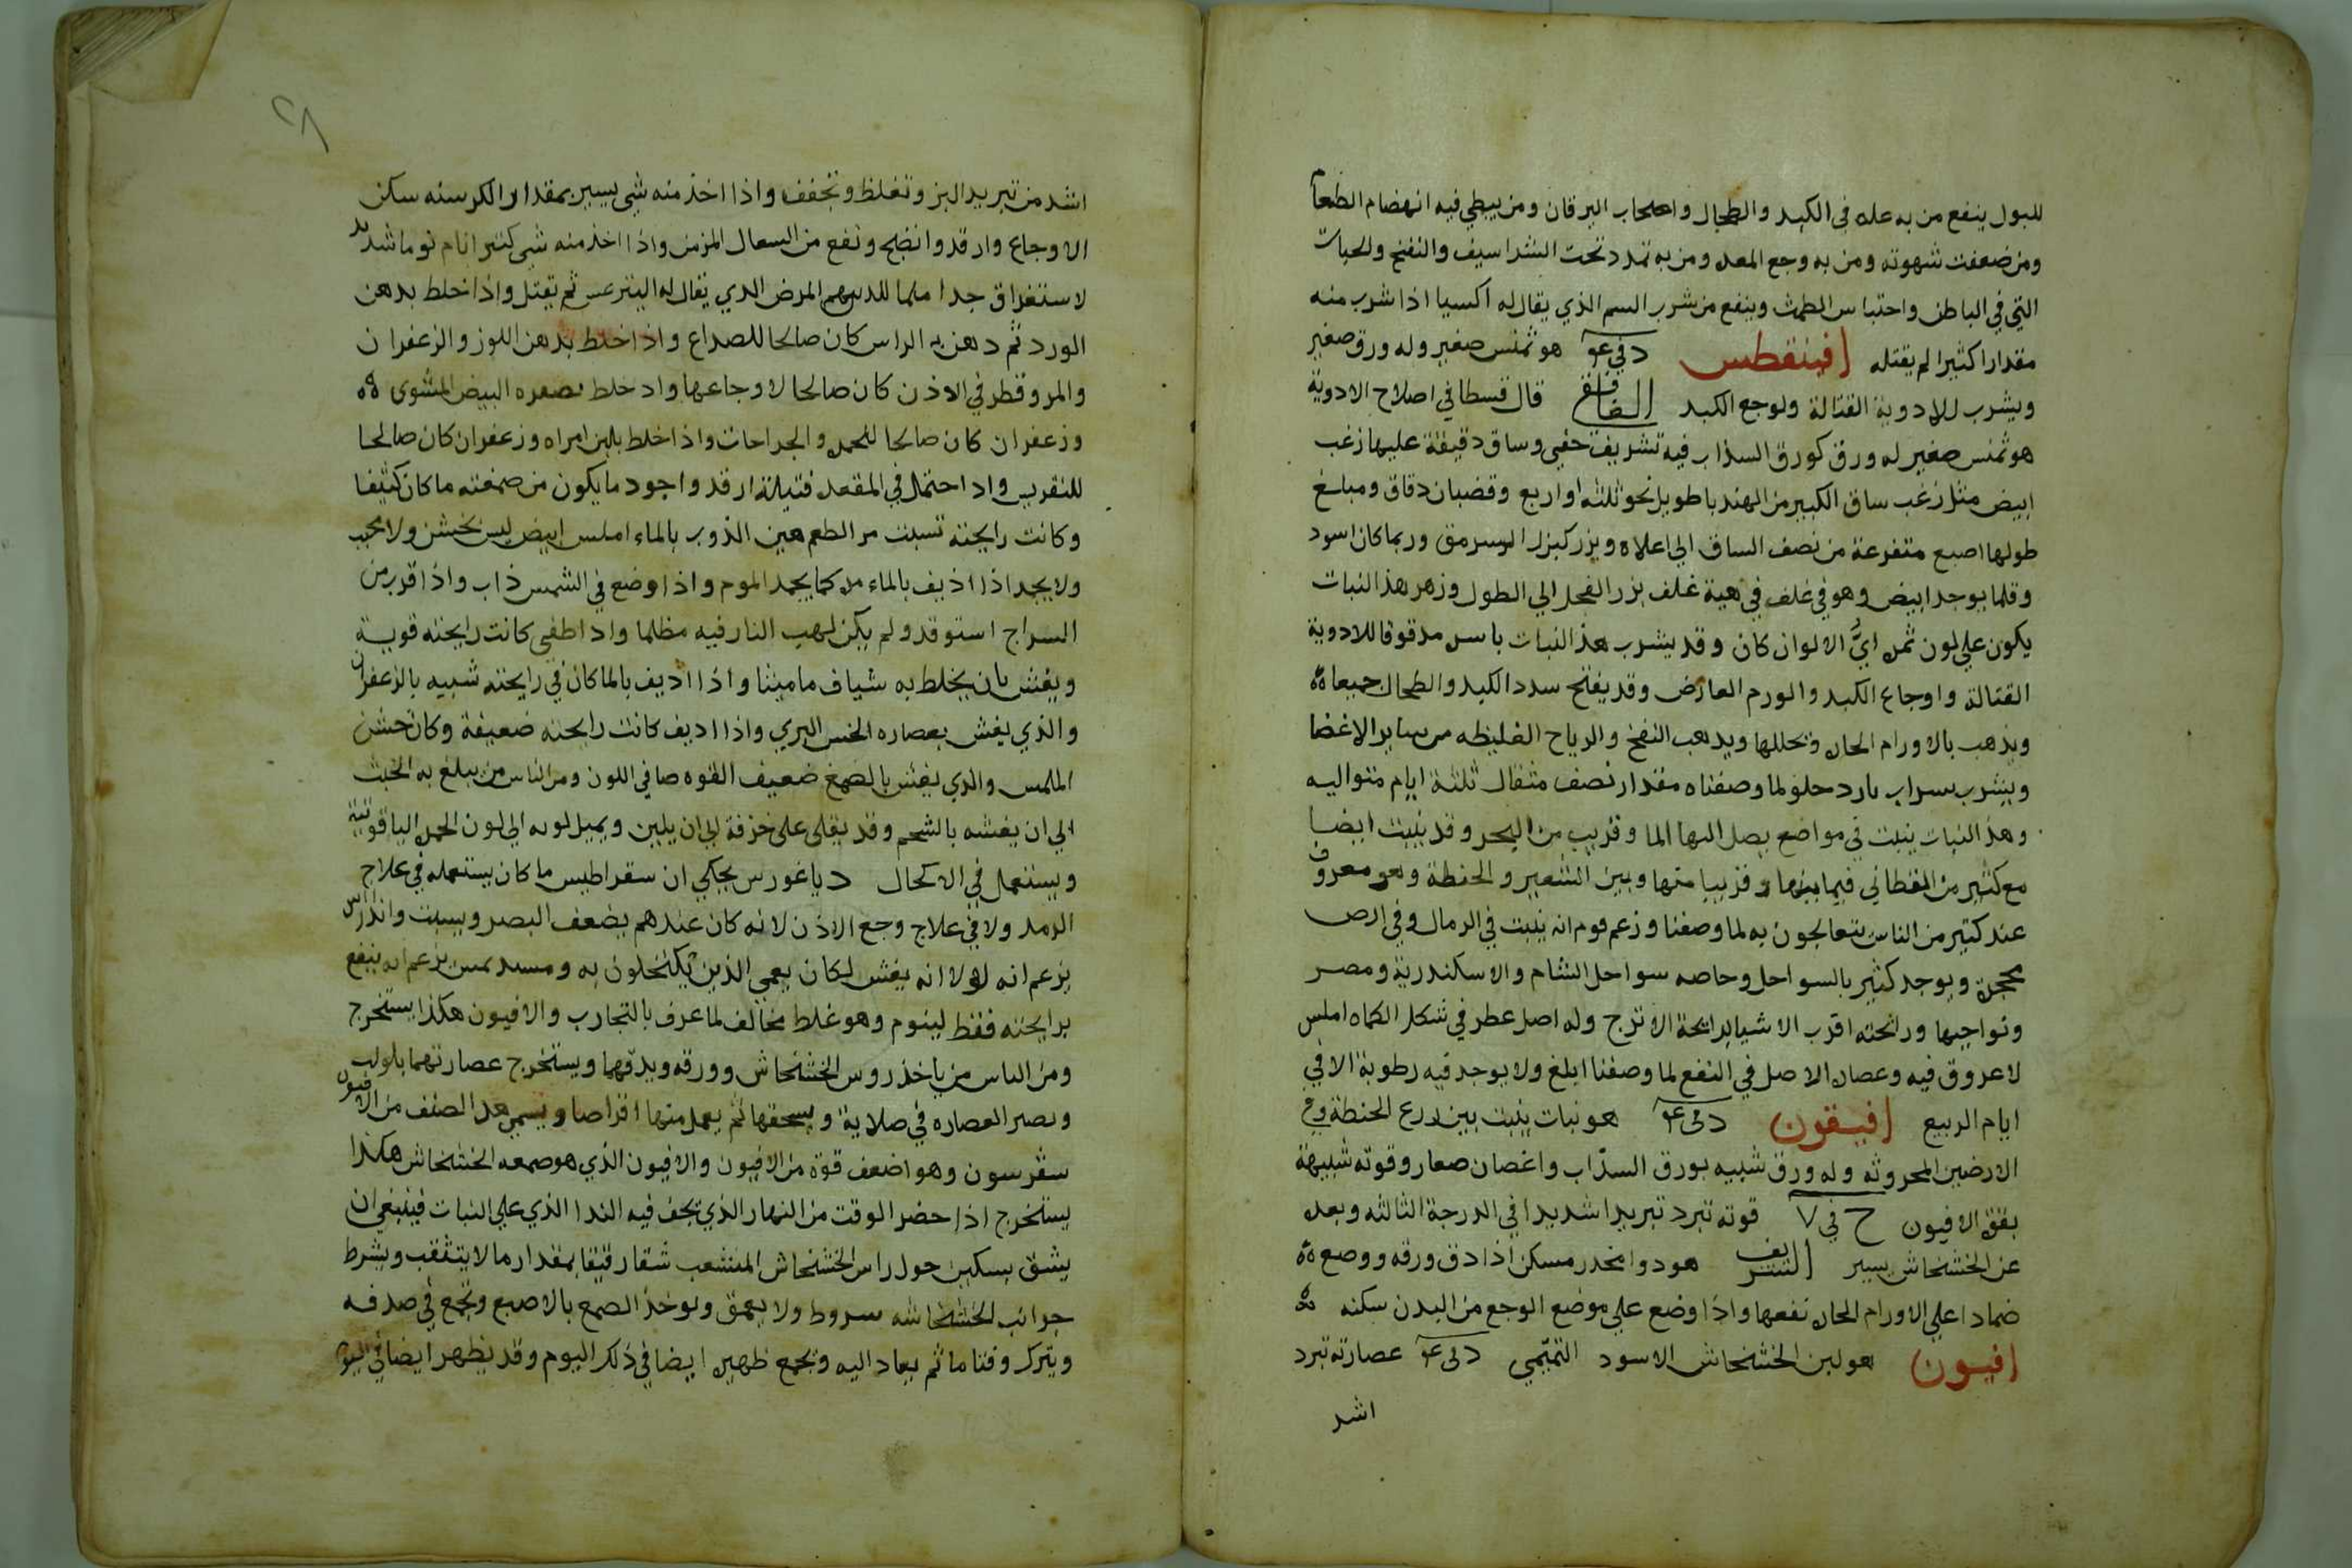 للبول ينفع من به عله في الكبد والطحال واصحاب اليرقان ومن يبطي فيه انهضام الطعام
ومن ضعفت شهوته ومن به وجع المعده ومن به تمدد تحت الشراسيف والنفخ والحيات
التي في الباطن واحتباس الطمث وينفع من شرب السم الذي يقال له اكسيا اذا شرب منه
مقدارا كثيرا لم يقتله افينقطس د في عو هو تمنس صغير وله ورق صغير
ويشرب للادوية القتالة ولوجع الكبد قال قسطا في اصلاح الادوية
هو تمنس صغير له ورق كورق السذاب فيه تشريف خفي وساق دقيقة عليها زغب
ابيض مثل زغب ساق الكبير من الهندبا طويل نحو ثلثه او اربع وقضبان دقاق ومبلغ
طولها اصبع متفرعة من نصف الساق الي اعلاه وبزر كبزر السرمق وربما كان اسود
وقلما يوجد ابيض وهو في غلف في هية غلف بزر الفجل الي الطول وزهر هذا النبات
يكون علي لون ثمره ايُّ الالوان كان وقد يشرب هذا النبات باسره مدقوقا للادوية
القتالة واوجاع الكبد والورم العارض وقد يفتح سدد الكبد والطحال جميعا
ويذهب بالاورام الحاره وتحللها ويذهب النفخ والرياح الغليظه من ساير الاعضا
ويشرب بسراب بارد حلو لما وصفناه مقدار نصف مثقال ثلثة ايام متواليه
وهذا النبات ينبت في مواضع يصل اليها الما وقريب من البحر وقد ينبت ايضا
مع كثير من القطاني فيما بينها وقريبا منها وبين الشعير والحنطة وهو معروف
عند كثير من الناس يتعالجون به لما وصفنا وزعم قوم انه ينبت في الرمال وفي ارض
محجرة ويوجد كثير بالسواحل وخاصه سواحل الشام والاسكندرية ومصر
ونواحيها ورائحته اقرب الاشيا برائحة الاترج وله اصل عطر في شكل الكماه املس
لا عروق فيه وعصاره الاصل في النفع لما وصفنا ابلغ ولا يوجد فيه رطوبة الا في
ايام الربيع افيقون د في عو هو نبات ينبت بين زرع الحنطة وفي
الارضين المحروثه وله ورق شبيه بورق السذّاب واغصان صغار وقوته شبيهة
بقوة الافيون ح في ٧ قوته تبرد تبريدا شديدا في الدرجة الثالثه وبعده
عن الخشخاش يسير الشريف هو دوا مخدر مسكن اذا دق ورقه ووضع
ضمادا علي الاورام الحاره نفعها واذا وضع علي موضع الوجع من البدن سكنه
افيون هو لبن الخشخاش الاسود التميّمي د في عو عصارته تبرد
اشد
اشد من تبريد البزر وتغلظ وتجفف واذا اخذ منه شي يسير بمقدار الكرسنه سكن
الاوجاع وارقد وانضج ونفع من السعال المزمن واذا اخذ منه شي كثير انام نوما شديد
لاستغراق جدا المرض الدي يقال له ليترغس ثم يقتل واذا خلط بدهن
الورد ثم دهن به الراس كان صالحا للصداع واذا خلط بدهن اللوز والزعفران
والمر وقطر في الاذن كان صالحا لاوجاعها واد خلط بصفره البيض المشوى
وزعفران كان صالحا للحمره والجراحات واذا خلط بلبن امراه وزعفران كان صالحا
للنقريس واد احتمل في المقعد فتيلة ارقد واجود ما يكون من صمغته ما كان كثيفا
وكانت رايحته تسبت مر الطعم هين الذوب بالماء املس ابيض ليس بخشن ولا محبب
ولا يجمد اذا اذيف بالماء كما يجمد الموم واذا وضع في الشمس ذاب واذا قرب من
السراج استوقد ولم يكن لهيب النار فيه مظلما واد اطفي كانت رايحته قوية
ويغش بان يخلط به شياف ماميثا واذا اذيف بالما كان في رايحته شبيه بالزعفران
والذي يغش بعصاره الخس البري واذا اديف كانت رايحته ضعيفة وكان خشن
الملمس والذي يغش بالصمغ ضعيف القوه صافي اللون ومن الناس من يبلغ به الخبث
الي ان يغشه بالشحم وقد يقلى على خزفة الي ان يلين ويميل لونه الي لون الحمرة الياقوتية
ويستعمل في الاكحال دياغورس يحكي ان سقراطيس ما كان يستعمله في علاج
الرمد ولا في علاج وجع الاذن لانه كان عندهم يضعف البصر ويسبت واندراس
يزعم انه لولا انه يغش لكان يعمي الذين يكتحلون به يزعم انه ينفع
برايحته فقط لينوم وهو غلط مخالف لما عرف بالتجارب والافيون هكذا يستخرج
ومن الناس من ياخذ روس الخشخاش وورقه ويدقهما ويستخرج عصارتهما بلولب
ويصير العصاره في صلاية ويسحقها ثم يعمل منها اقراصا ويسمي هذا الصنف من الافيون
وهو اضعف قوة من الافيون والافيون الذي هو صمغه الخشخاش هكذا
يستخرج اذا حضر الوقت من النهار الذي تجف فيه الندا الذي علي النبات فينبغي ان
يشق بسكين حول راس الخشخاش المتشعب شقا رقيقا بمقدار ما لا يتثقب ويشرط
جوانب الخشخاشه سروط ولا يعمق ويوخذ الصمغ بالاصبع وتجمع في صدفه
ويترك وقتا ما ثم يعاد اليه وتجمع ايضا في ذلك اليوم وقد يظهر ايضا في اليوم